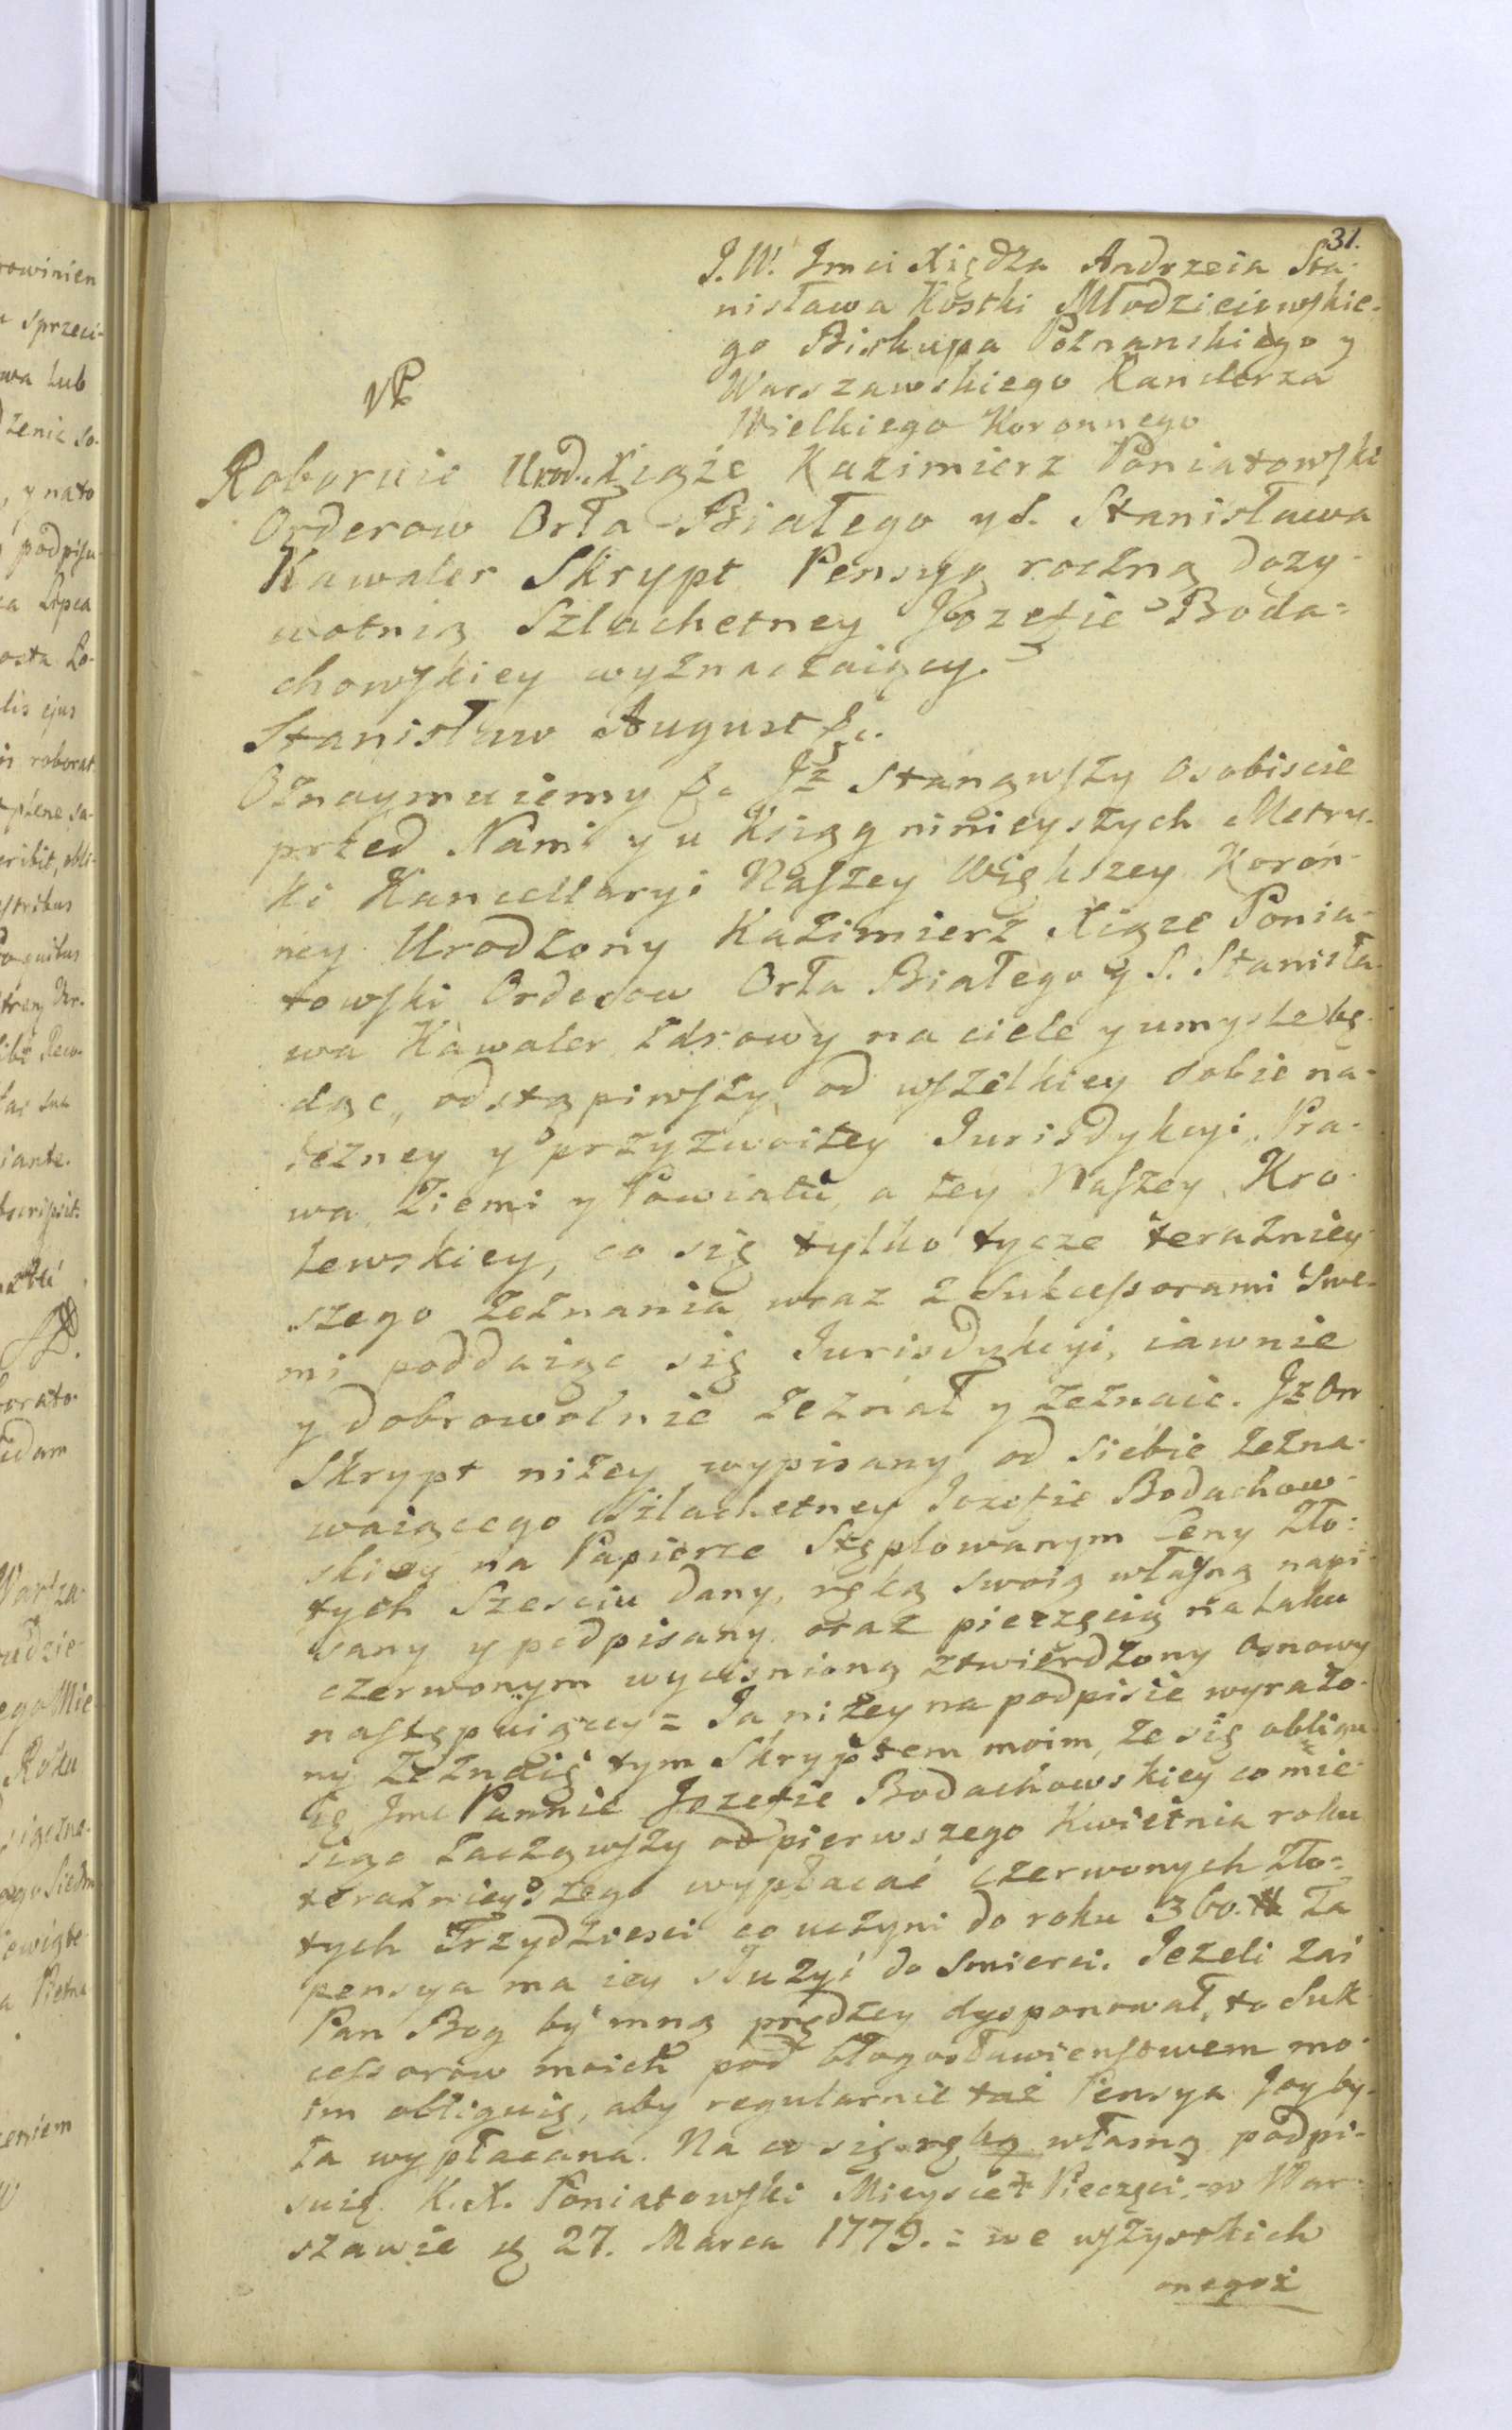 31.
J. W. Jmci Xiędza Andrzeia Sta-
nisława Kostki Młodzieiowskie-
go Biskupa Poznanskiego y
Warszawskiego Kanclerza
Wielkiego Koronnego
Roboruie Urod. Xiąże Kazimierz Poniatowski
Orderow Orła Białego y S. Stanisława
Kawaler Skrypt Pensyą roczną dozy-
wotnią Szlachetney Jozefie Boda=
chowskiey wyznaczaiący.
Stanisław August &c.
Oznaymuiemy &c Jz Stanąwszy osobiscie
przed Nami y u Xsiąg ninieyszych Metry-
ki Kancellaryi Naszey Większey Koron-
ney Urodzony Kazimierz Xiąze Ponia-
towski Orderow Orła Białego y S. Stanisła-
wa Kawaler zdrowy na ciele y umysle bę-
dąc, odstąpiwszy od wszelkiey sobie na-
lezney y przyzwoitey Jurisdykcyi, Pra-
wa, Ziemi y Powiatu, a tey Naszey Kro-
lewskiey, co się tylko tycze terazniey-
szego zeznania wraz z Sukcessorami Swe-
mi poddaiąc się Jurisdykcyi, iawnie
y dobrowolnie zeznał y zeznaie. Jz On
Skrypt nizey wypisany od siebie zezna-
waiącego Szlachetney Jozefie Bodachow-
skiey na Papierze Stęplowanym Ceny Zło=
tych Szesciu dany, ręką swoią własną napi-
sany y podpisany oraz pieczęcią na laku
czerwonym wycisnioną ztwierdzony osnowy
następuiący = Ja nizey na podpisie wyrazo-
ny zeznaię tym Skryptem moim, ze się obligu-
ię Jmc Pannie Jozefie Bodachowskiey co mie-
siąc zacząwszy od pierwszego Kwietnia roku
teraznieyszego wypłacać czerwonych zło=
tych Trzydziesci co uczyni do roku 360. # Ta
pensya ma iey słuzyć do smierci. Jezeli zas
Pan Bog by mną prędzey dysponował, to Suk-
cessorow moich pod błogosławienstwem mo-
im obliguię, aby regularnie taż Pensya Jey by-
ła wypłacana. Na co się ręką własną podpi-
suię. K. X. Poniatowski Mieysce Pieczęci - w War-
szawie d 27. Marca 1779. = we wszystkich
onegoż